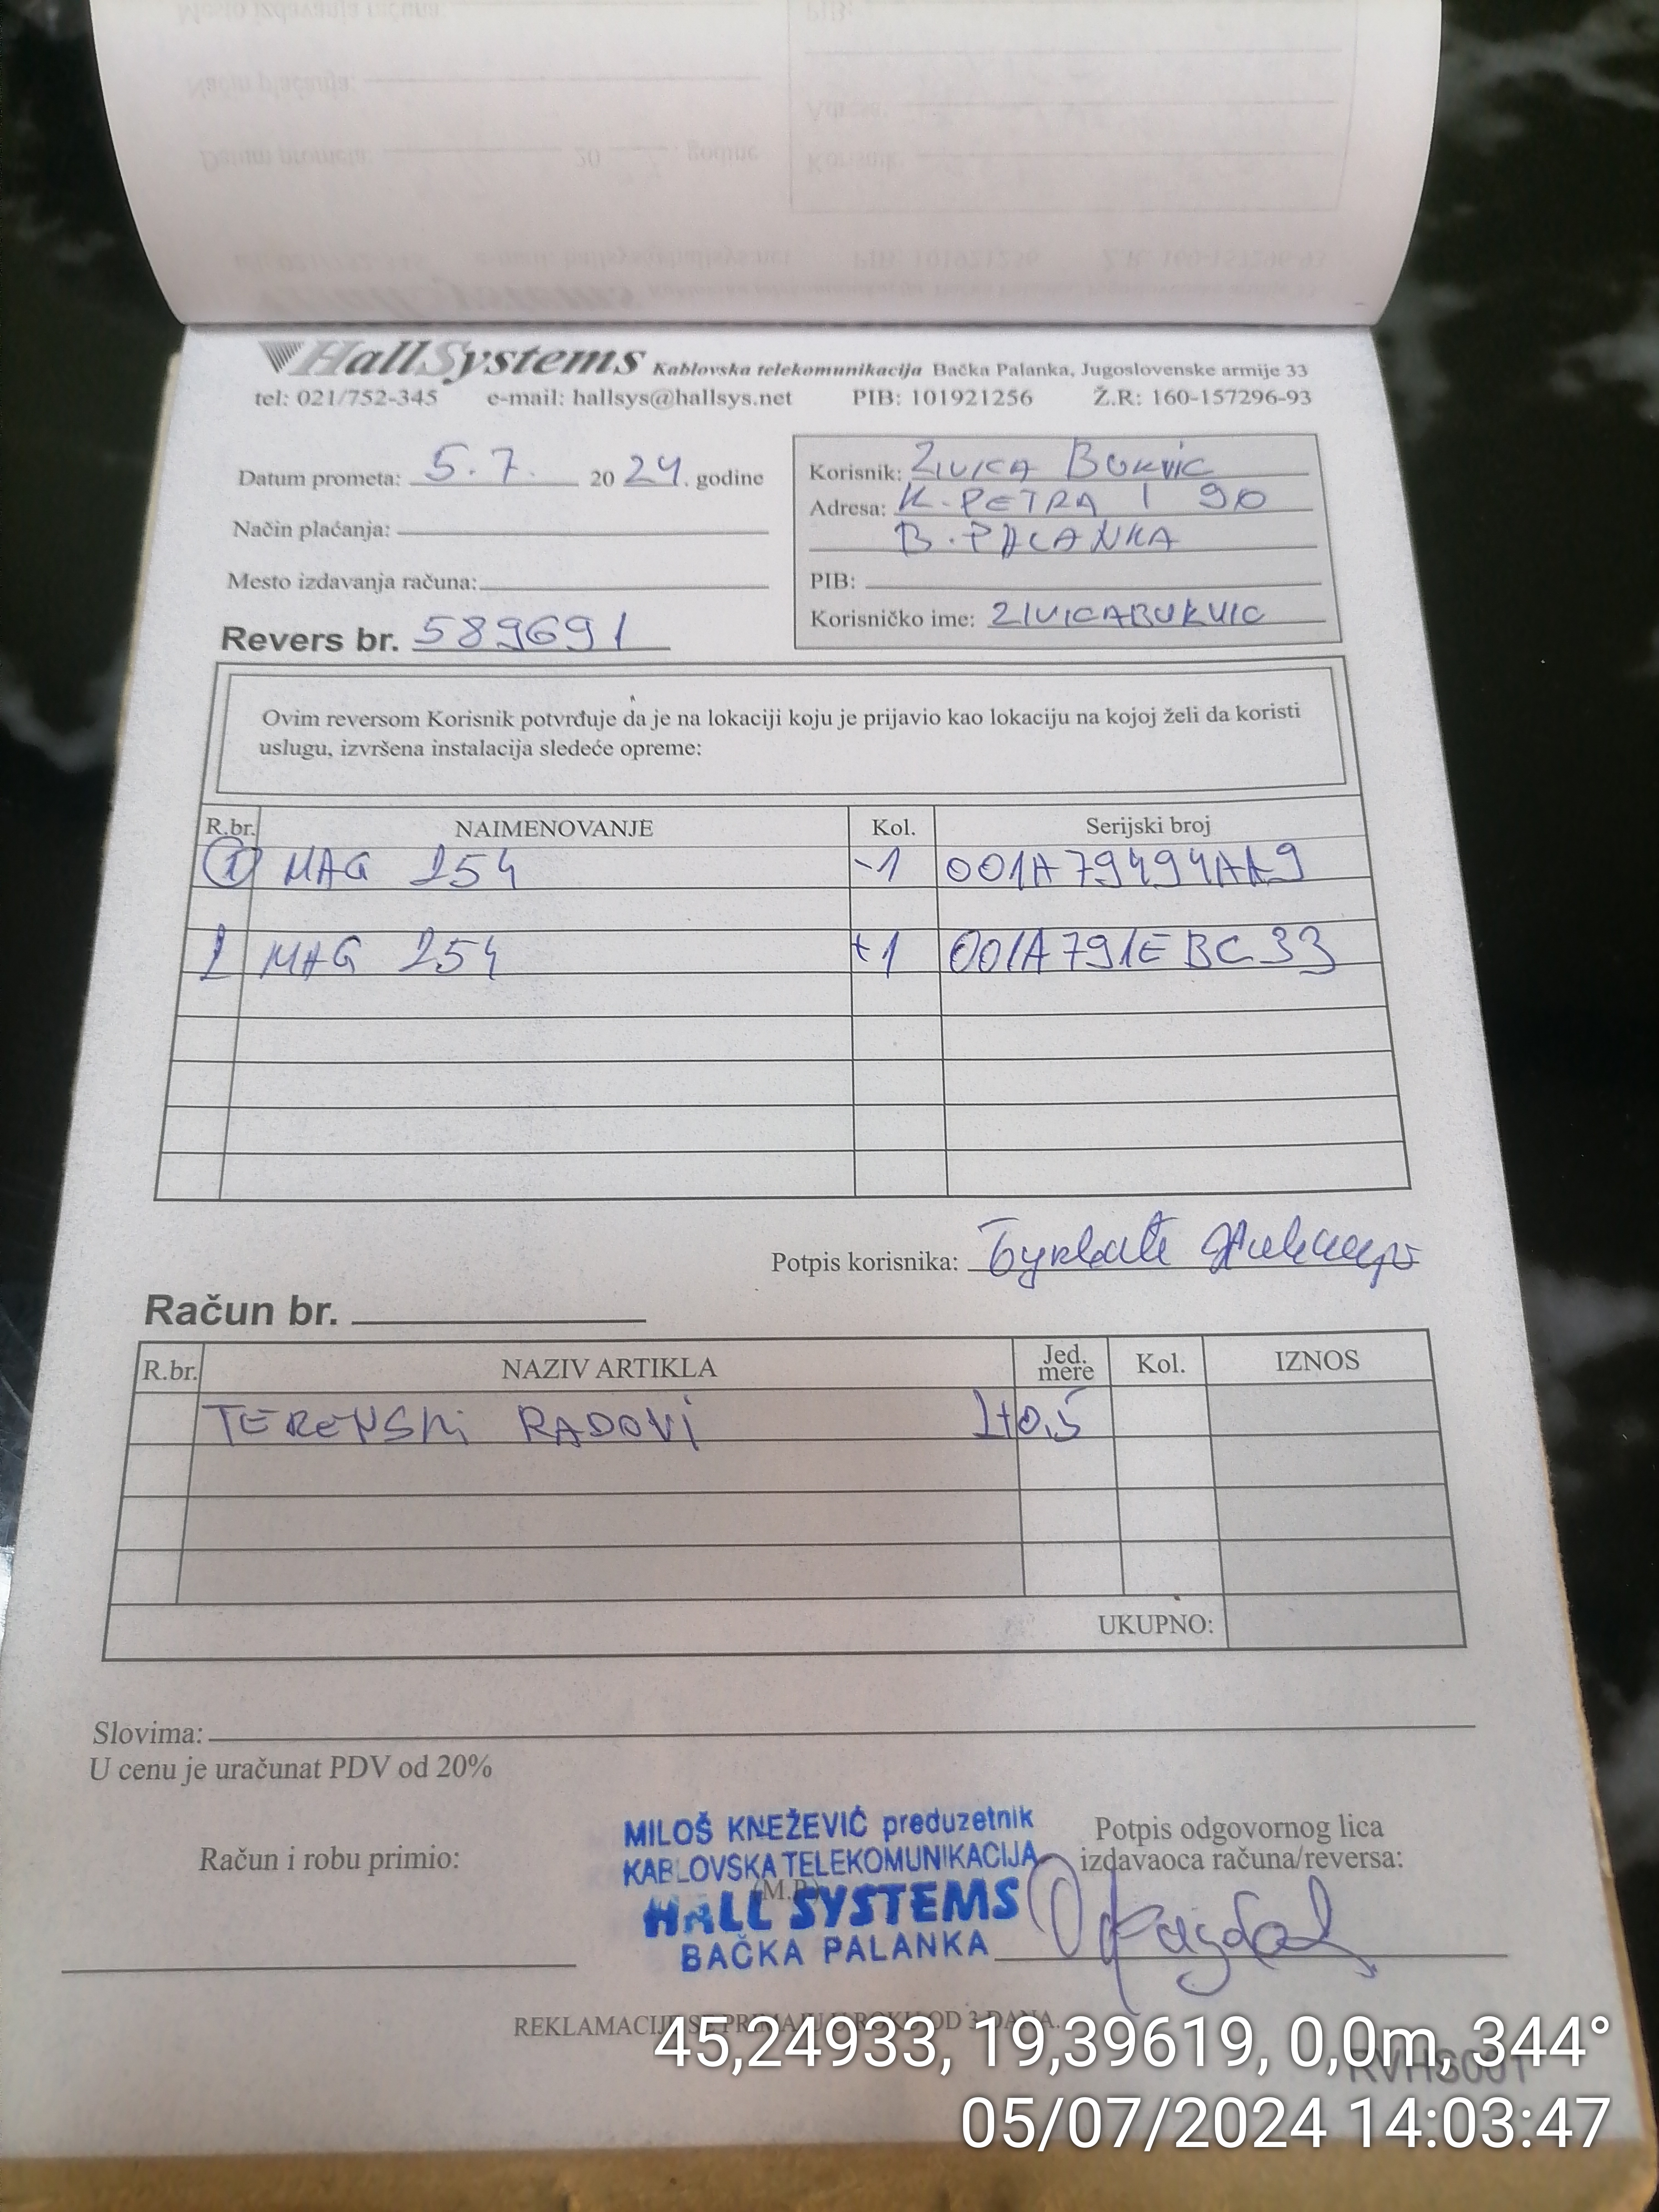 HallSystems Kablovska telekomunikacija Bačka Palanka, Jugoslovenske armije 33
tel: 021/752-345 e-mail: hallsys@hallsys.net PIB: 101921256 Ž.R: 160-157296-93
Datum prometa: 5.7. 20 24. godine
Način plaćanja:
Mesto izdavanja računa:
Revers br. 589691
Korisnik: ZIVICA BUKVIC
Adresa: K. PETRA I 90
B. PALANKA
PIB:
Korisničko ime: ZIVICABUKVIC
Ovim reversom Korisnik potvrđuje da je na lokaciji koju je prijavio kao lokaciju na kojoj želi da koristi
uslugu, izvršena instalacija sledeće opreme:
R.br. NAIMENOVANJE Kol. Serijski broj
1 MAG 254 -1 001A79494AA9
1 MAG 254 +1 001A791EBC33
Potpis korisnika:
Račun br.
R.br. NAZIV ARTIKLA Jed. mere Kol. IZNOS
TERENSKI RADOVI 1+0,5
UKUPNO:
Slovima:
U cenu je uračunat PDV od 20%
Račun i robu primio:
MILOŠ KNEŽEVIĆ preduzetnik
KABLOVSKA TELEKOMUNIKACIJA
(M.P.)
HALL SYSTEMS
BAČKA PALANKA
Potpis odgovornog lica
izdavaoca računa/reversa:
REKLAMACIJE SE PRIMAJU U ROKU OD 3 DANA.
RVHS001
45,24933, 19,39619, 0,0m, 344°
05/07/2024 14:03:47